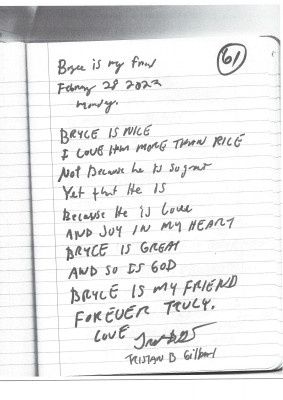 Bryce is my friend
61
February 28 2022
Monday.
BRYCE IS NICE
I LOVE HIM MORE THAN RICE
Not Because he is so great
Yet that He is
Because He is Love
AND JOY IN MY HEART
BRYCE IS GREAT
AND SO IS GOD
BRYCE IS MY FRIEND
FOREVER TRULY.
LOVE
TRISTAN B Gilbert